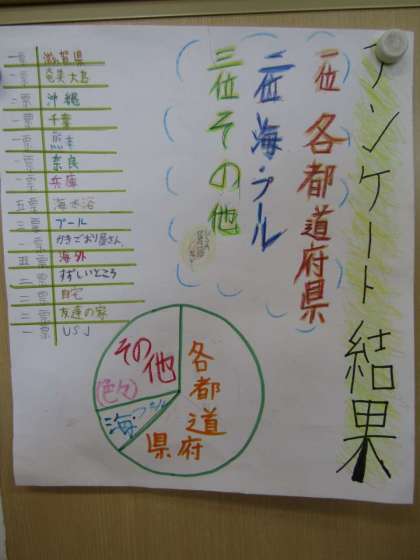 アンケート結果
一位 各都道府県
二位 海・プール
三位 その他
一票 滋賀県
一票 奄美大島
二票 沖縄
一票 千葉
一票 熊本
一票 奈良
一票 兵庫
五票 海水浴
三票 プール
一票 かきごおり屋さん
五票 海外
二票 すずしいところ
二票 自宅
二票 友達の家
一票 USJ
各都道府県
海・プール
その他
(色々)